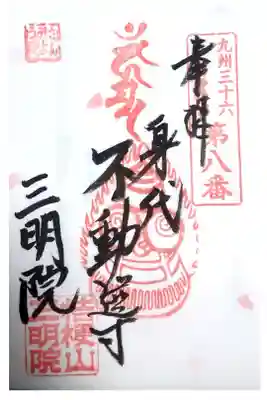 九州三十六
第八番
奉拝
身代
不動尊
三明院
登擾山
三明院